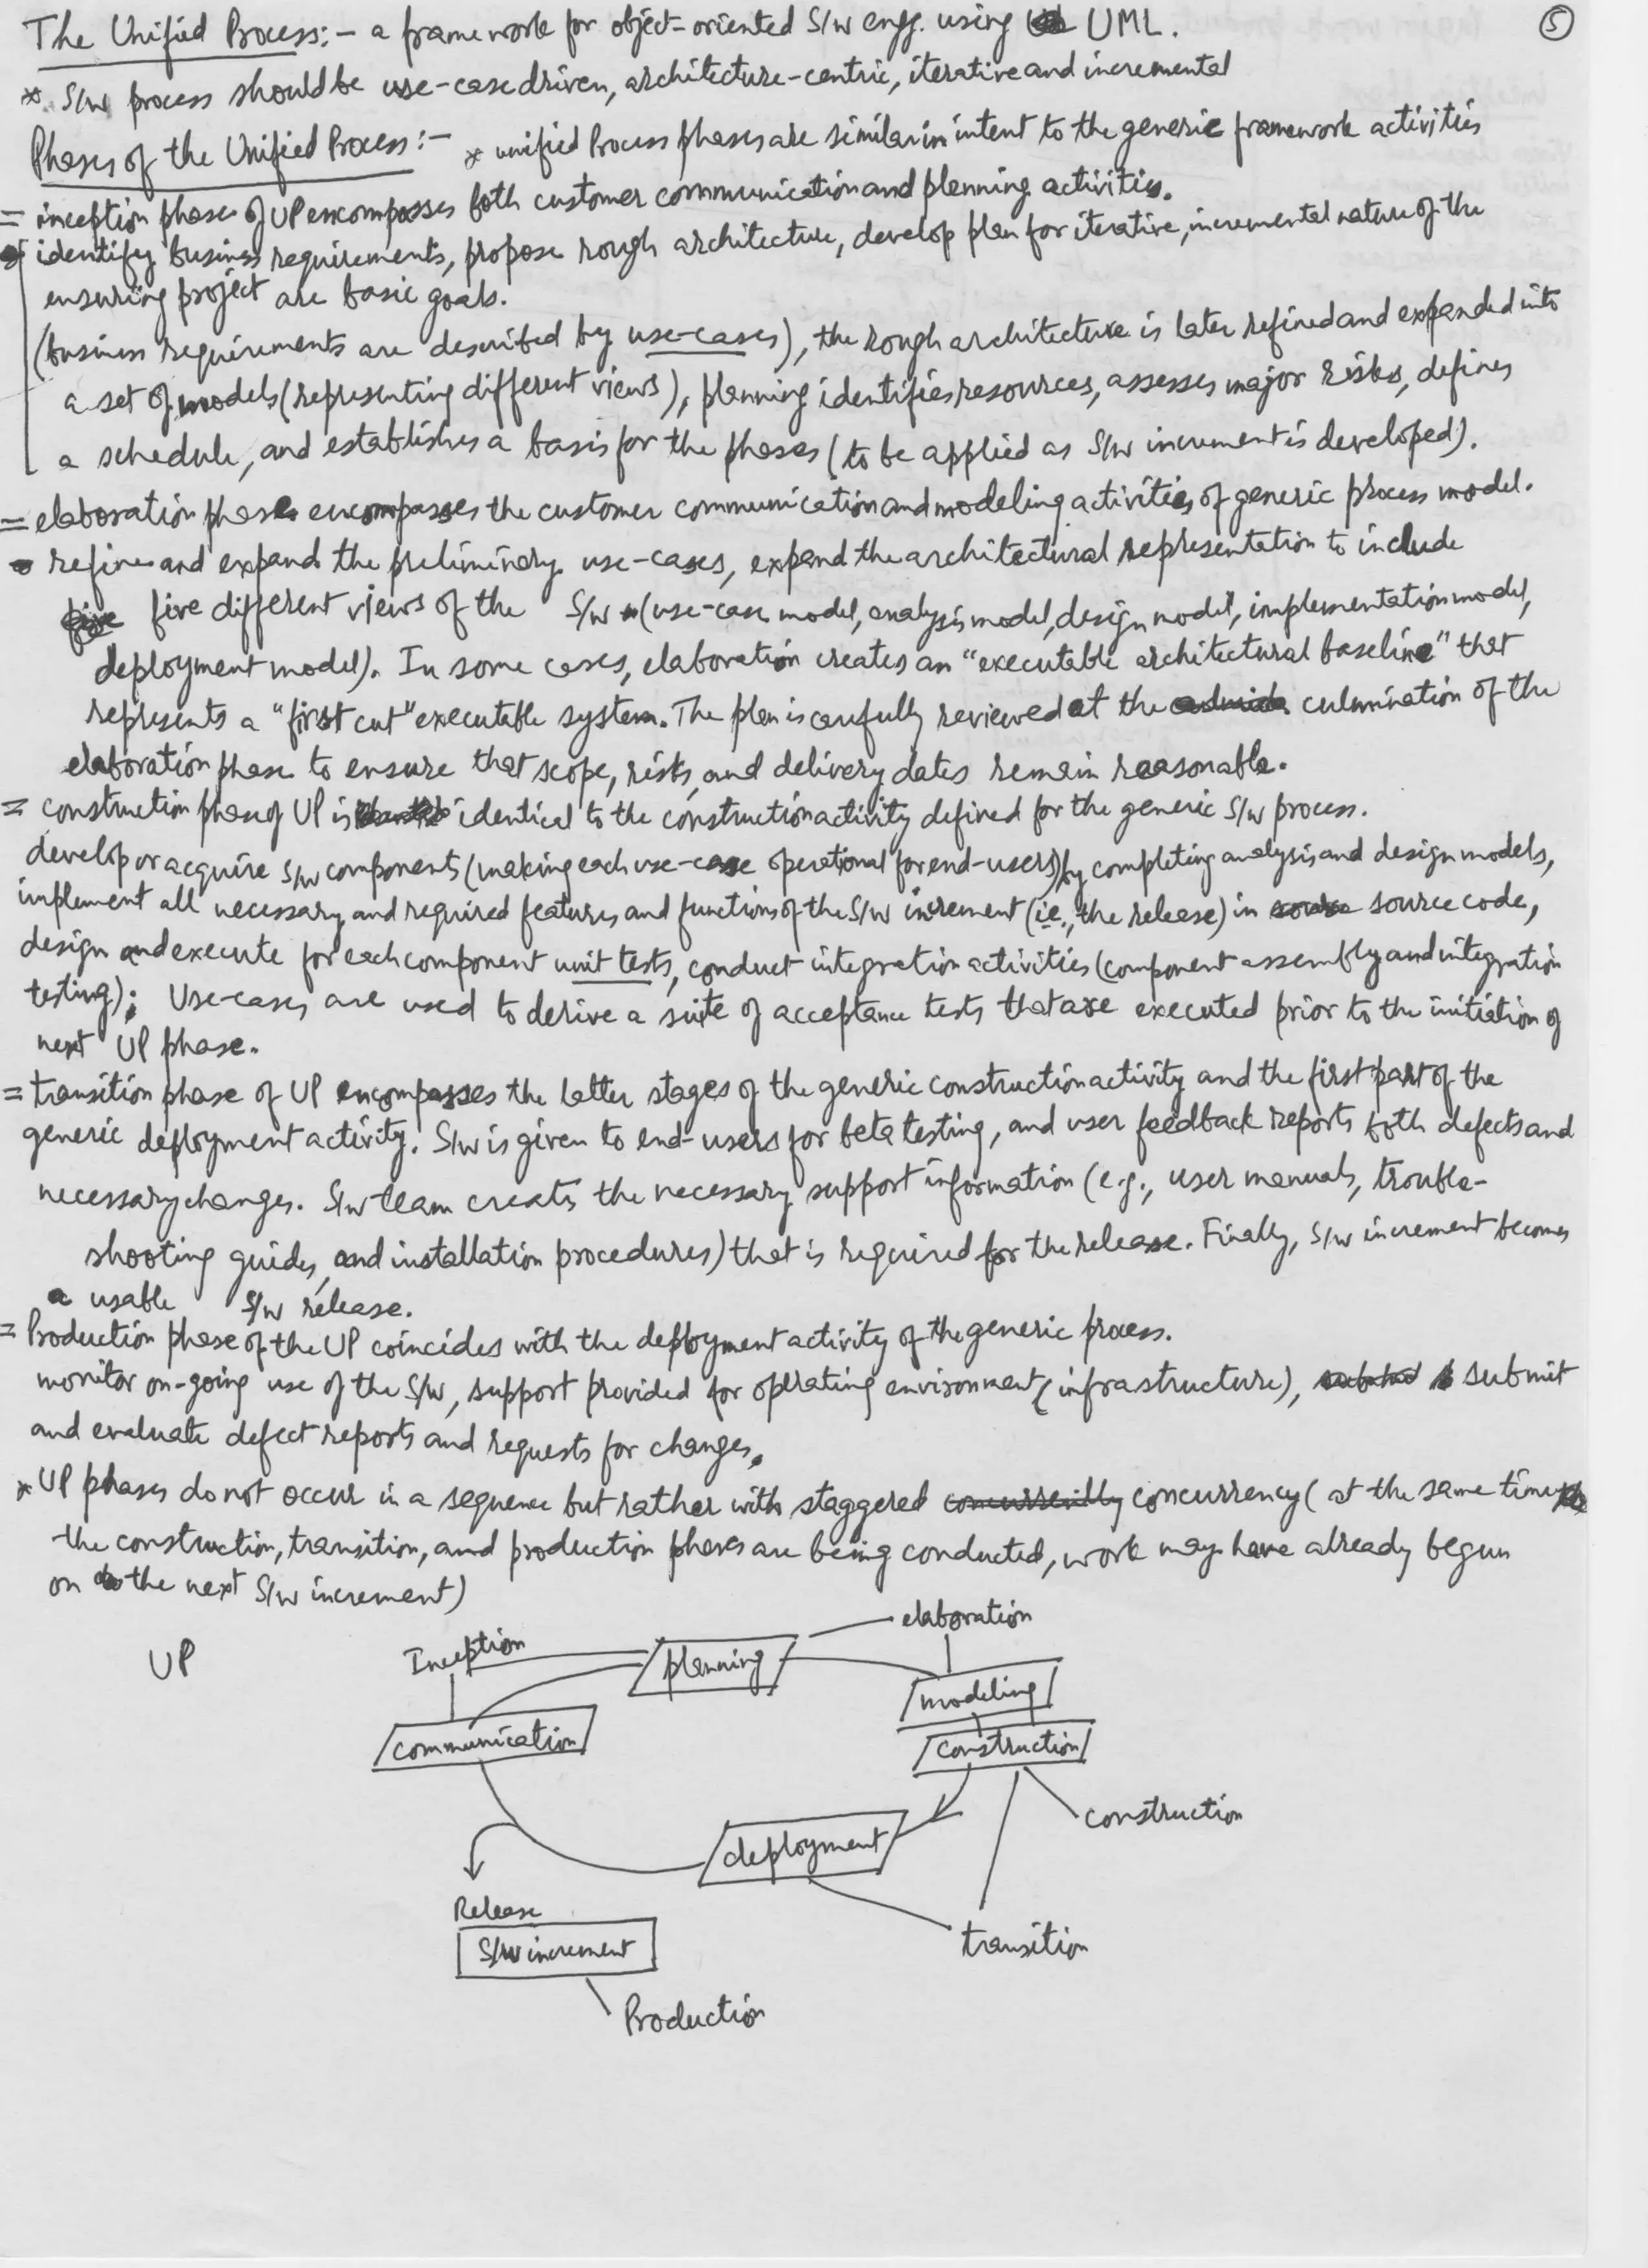 The Unified Process:- a framework for object-oriented S/W engg. using UML. 5
* S/W process should be use-case driven, architecture-centric, iterative and incremental
Phases of the Unified Process:- * unified Process phases are similar in intent to the generic framework activities
= inception phase of UP encompasses both customer communication and planning activities.
identify business requirements, propose rough architecture, develop plan for iterative, incremental nature of the
ensuring project are basic goals.
(business requirements are described by use-cases), the rough architecture is later refined and expanded into
a set of models (representing different views), planning identifies resources, assesses major risks, defines
a schedule, and establishes a basis for the phases (to be applied as S/W increment is developed).
= elaboration phase encompasses the customer communication and modeling activities of generic process model.
refines and expands the preliminary use-cases, expand the architectural representation to include
five different views of the S/W (use-case model, analysis model, design model, implementation model,
deployment model). In some cases, elaboration creates an "executable architectural baseline" that
represents a "first cut" executable system. The plan is carefully reviewed at the culmination of the
elaboration phase to ensure that scope, risks, and delivery dates remain reasonable.
= construction phase of UP is identical to the construction activity defined for the generic S/W process.
develop or acquire S/W components (making each use-case operational for end-users) by completing analysis and design models,
implement all necessary and required features and functions of the S/W increment (i.e., the release) in source code,
design and execute for each component unit tests, conduct integration activities (component assembly and integration
testing); Use-cases are used to derive a suite of acceptance tests that are executed prior to the initiation of
next UP phase.
= transition phase of UP encompasses the latter stages of the generic construction activity and the first part of the
generic deployment activity. S/W is given to end-users for beta testing, and user feedback reports both defects and
necessary changes. S/W team creates the necessary support information (e.g., user manuals, trouble-
shooting guides, and installation procedures) that is required for the release. Finally, S/W increment becomes
a usable S/W release.
= Production phase of the UP coincides with the deployment activity of the generic process.
monitor on-going use of the S/W, support provided for operating environment (infrastructure), submit
and evaluate defect reports and requests for changes.
* UP phases do not occur in a sequence but rather with staggered concurrency (at the same time
the construction, transition, and production phases are being conducted, work may have already begun
on the next S/W increment)
elaboration
UP Inception planning
modeling
communication construction
construction
deployment
Release
S/W increment transition
Production